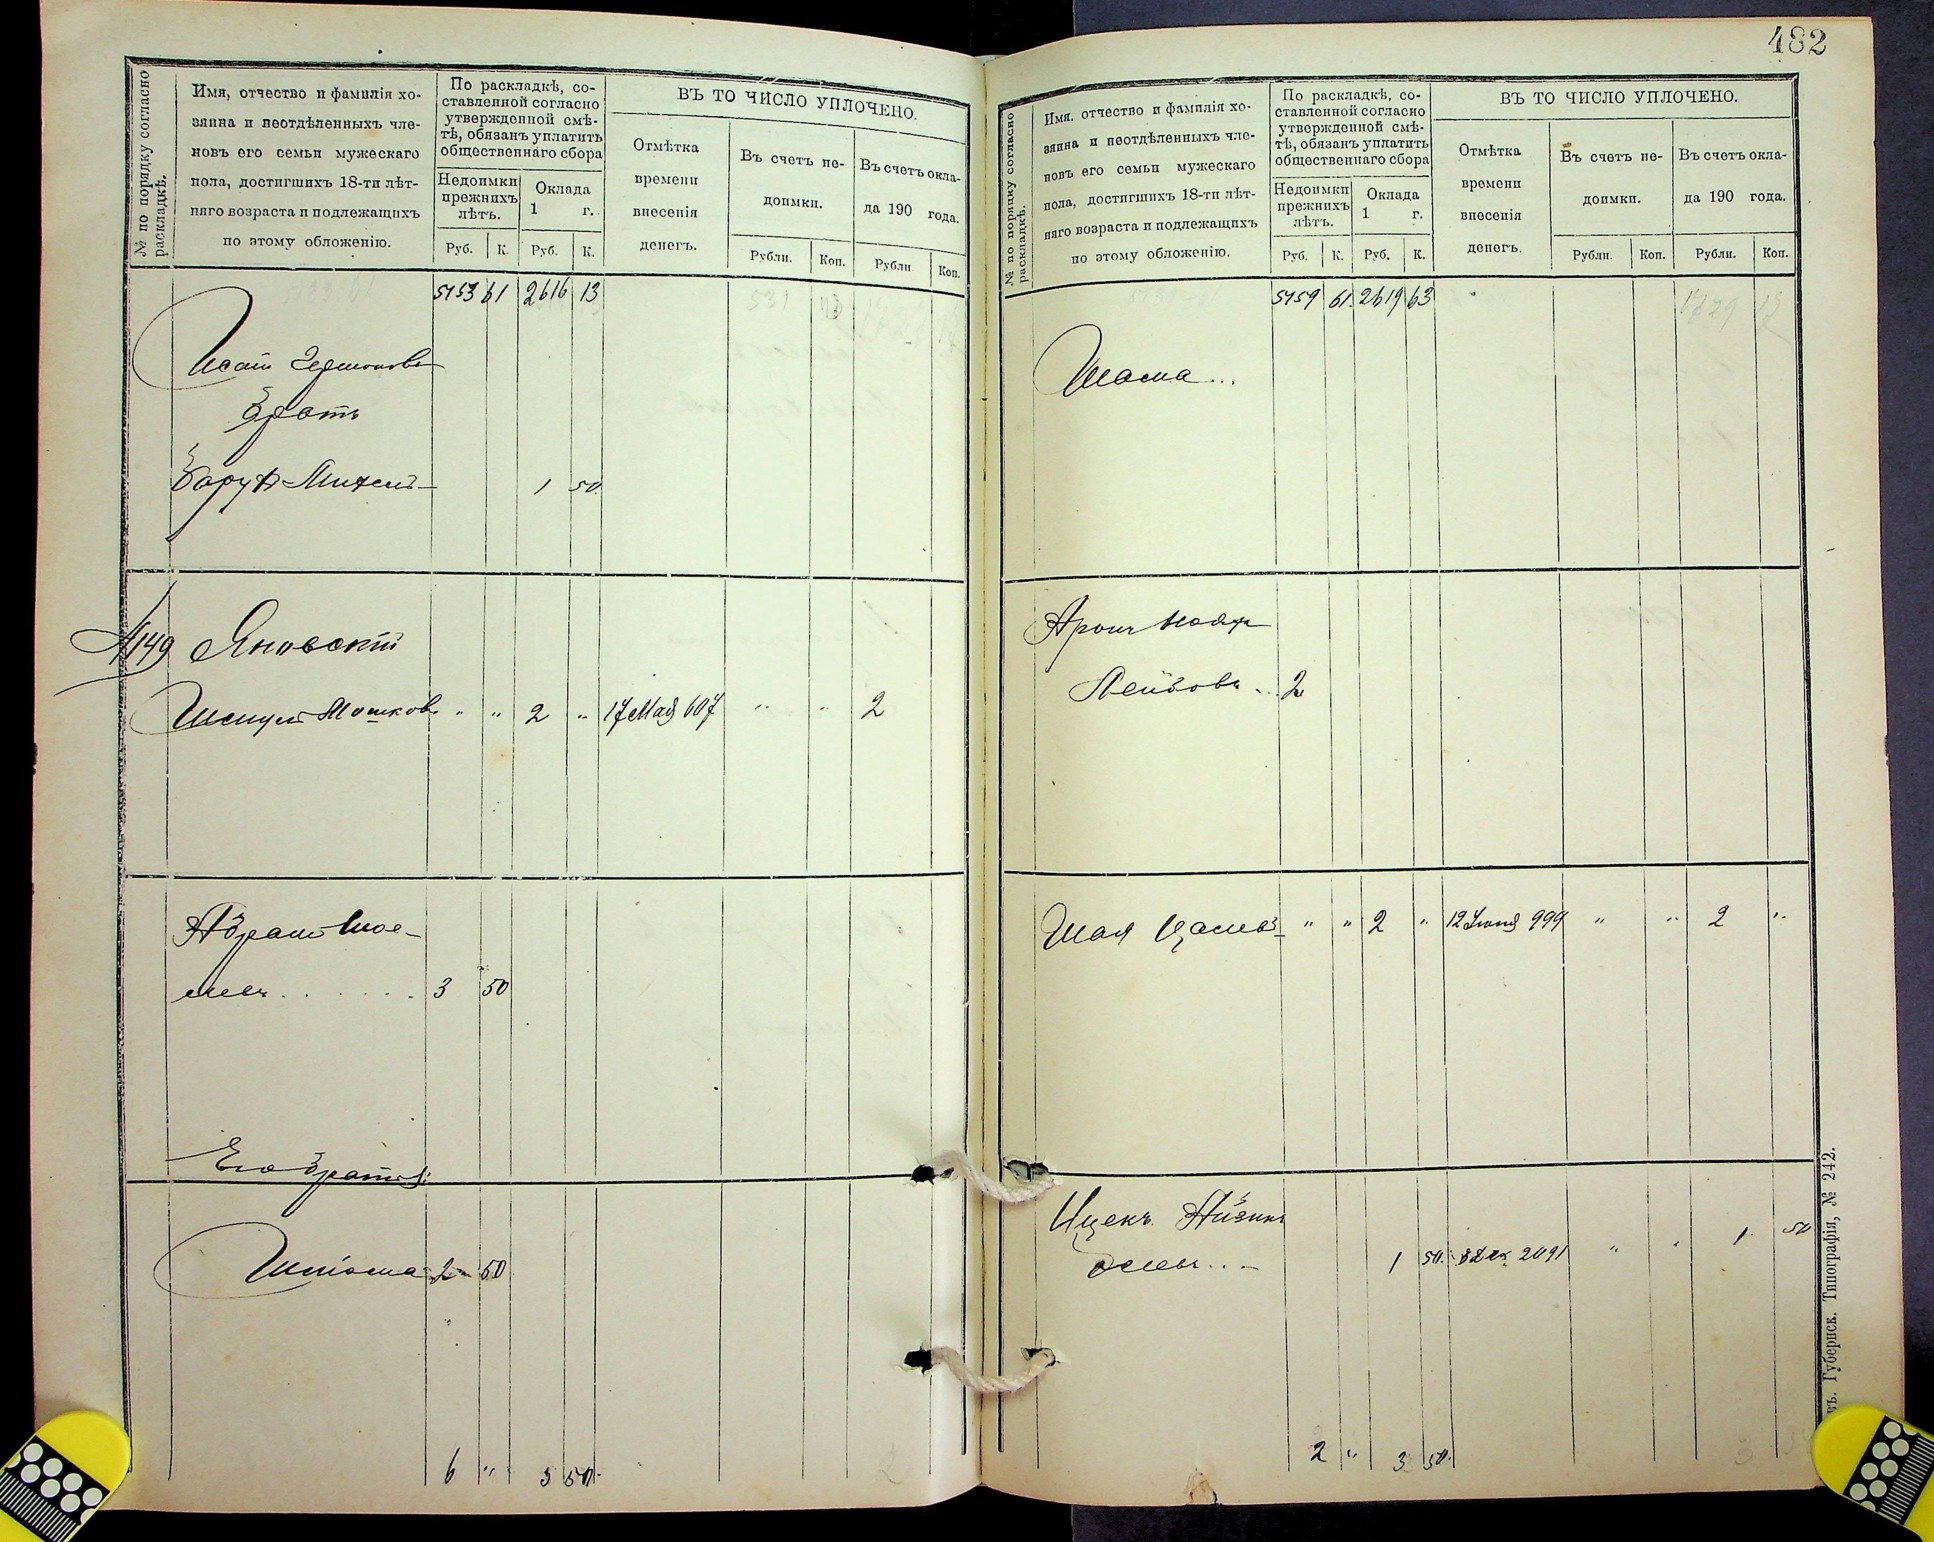 № по порядку согласно раскладкѣ.
Имя, отчество и фамилія хо-
зяина и неотдѣленныхъ чле-
новъ его семьи мужескаго
пола, достигшихъ 18-ти лѣт-
няго возраста и подлежащихъ
по этому обложенію.
По раскладкѣ, со-
ставленной согласно
утвержденной смѣ-
тѣ, обязанъ уплатить
общественнаго сбора
Недоимки
прежнихъ
лѣтъ.
Оклада
1 г.
Руб. К. Руб. К.
ВЪ ТО ЧИСЛО УПЛОЧЕНО.
Отмѣтка
времени
внесенія
денегъ.
Въ счетъ не-
доимки.
Въ счетъ окла-
да 190 года.
Рубли. Коп. Рубли Коп.
5153 61 2616 13
братъ
1 50
№149 Яновскій
Шмуел Мошков. " " 2 " 17 Мая 607 " " 2
Абрам
3 50
Его братья:
2 50
6 " 3 50
482
№ по порядку согласно раскладкѣ.
Имя, отчество и фамилія хо-
зяина и неотдѣленныхъ чле-
новъ его семьи мужескаго
пола, достигшихъ 18-ти лѣт-
няго возраста и подлежащихъ
по этому обложенію.
По раскладкѣ, со-
ставленной согласно
утвержденной смѣ-
тѣ, обязанъ уплатить
общественнаго сбора
Недоимки
прежнихъ
лѣтъ.
Оклада
1 г.
Руб. К. Руб. К.
ВЪ ТО ЧИСЛО УПЛОЧЕНО.
Отмѣтка
времени
внесенія
денегъ.
Въ счетъ не-
доимки.
Въ счетъ окла-
да 190 года.
Рубли. Коп. Рубли. Коп.
5159 61 2619 63 1729 12
Арон
Лейбовъ 2
Шая " " 2 " 12 999 " " 2 "
Ицекъ Айзикъ
1 50 2091 " " 1 50
2 " 3 50 3 50
Губернск. Типографія, № 242.